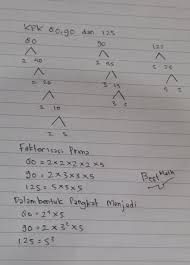 KPK 80, 90 dan 125
80 90 125
2 40 2 45 5 25
2 20 3 15 5 5
2 10 3 5
2 5
Faktorisasi Prima
80 = 2×2×2×2×5
90 = 2×3×3×5
125 = 5×5×5
Best Math
Dalam bentuk Pangkat Menjadi
80 = 2⁴×5
90 = 2×3²×5
125 = 5³